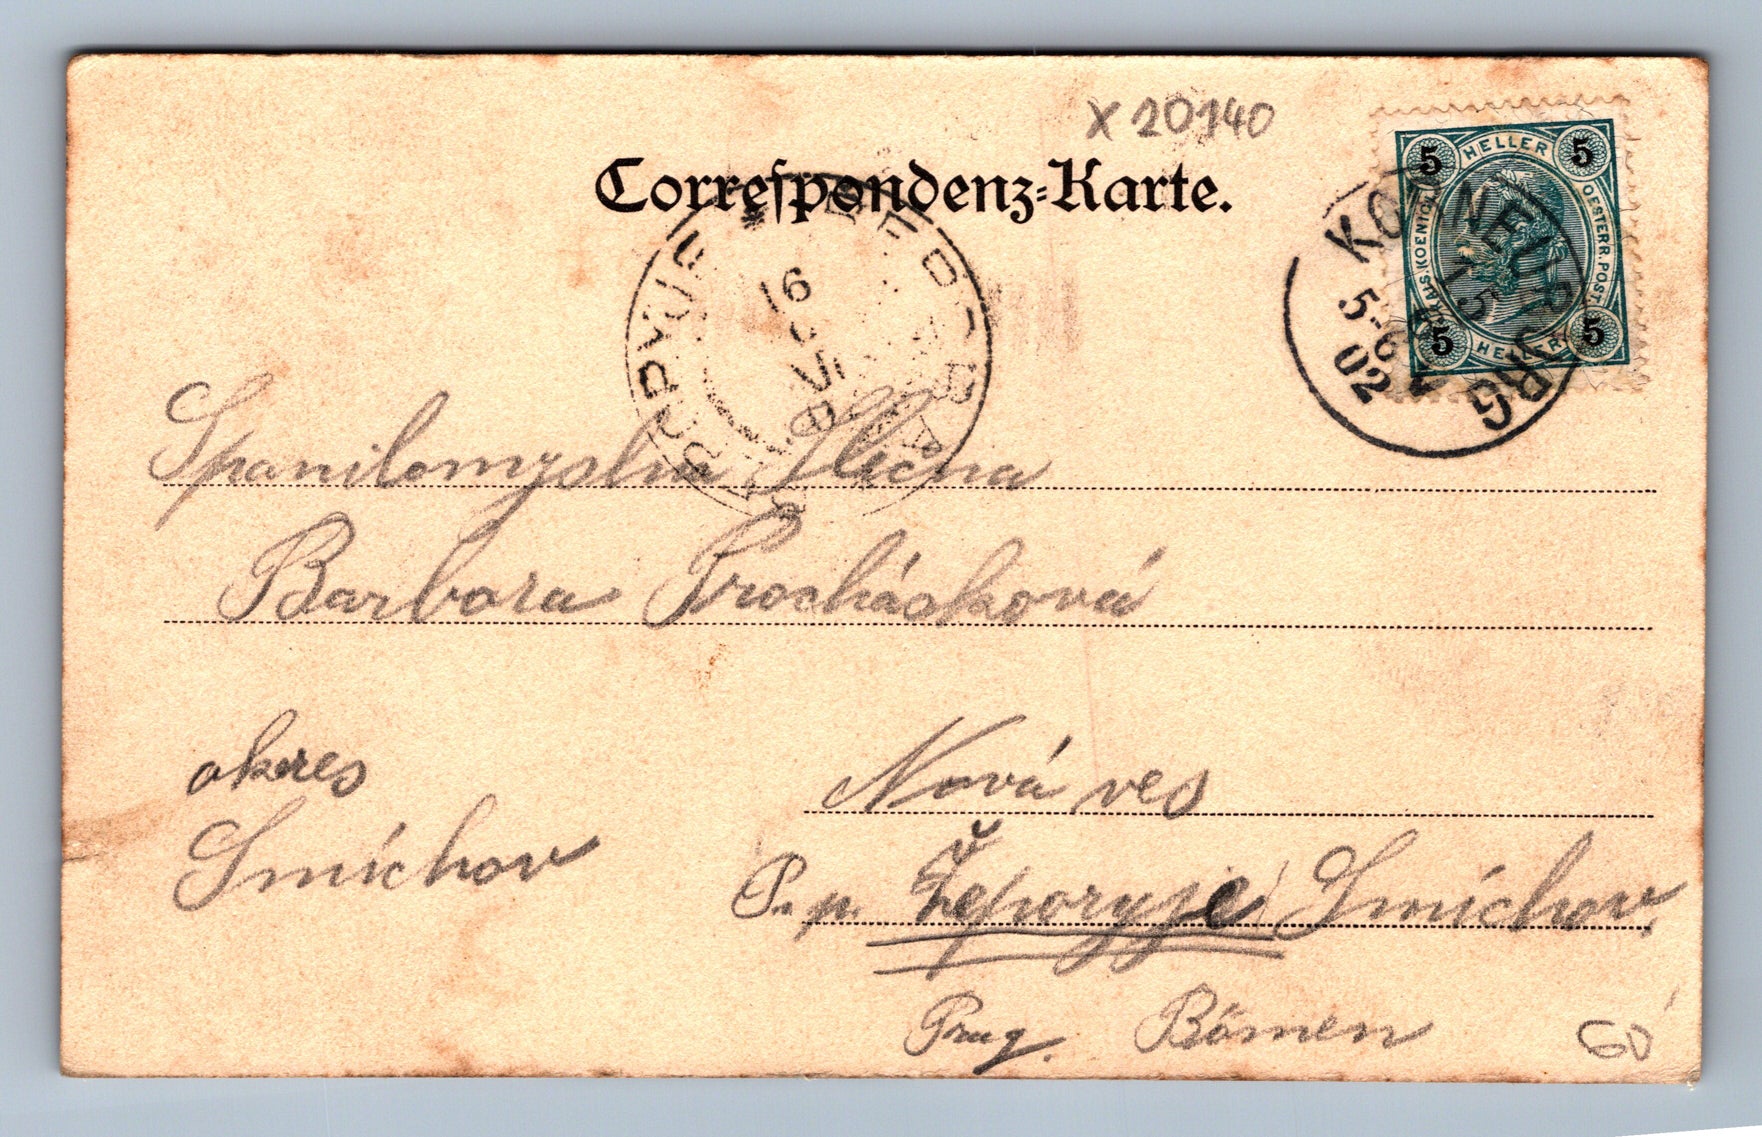 X 20140
Correſpondenz-Karte.
5 HELLER 5
KAIS. KOENIGL. OESTERR. POST.
5 HELLER 5
KORNEUBURG
5-6
02
16
VI
Spanilomyslna Slečna
Barbora Procházková
okres
Smíchov
Nová ves
P. p. Žeporyje Smíchov
Prag. Bömen
60